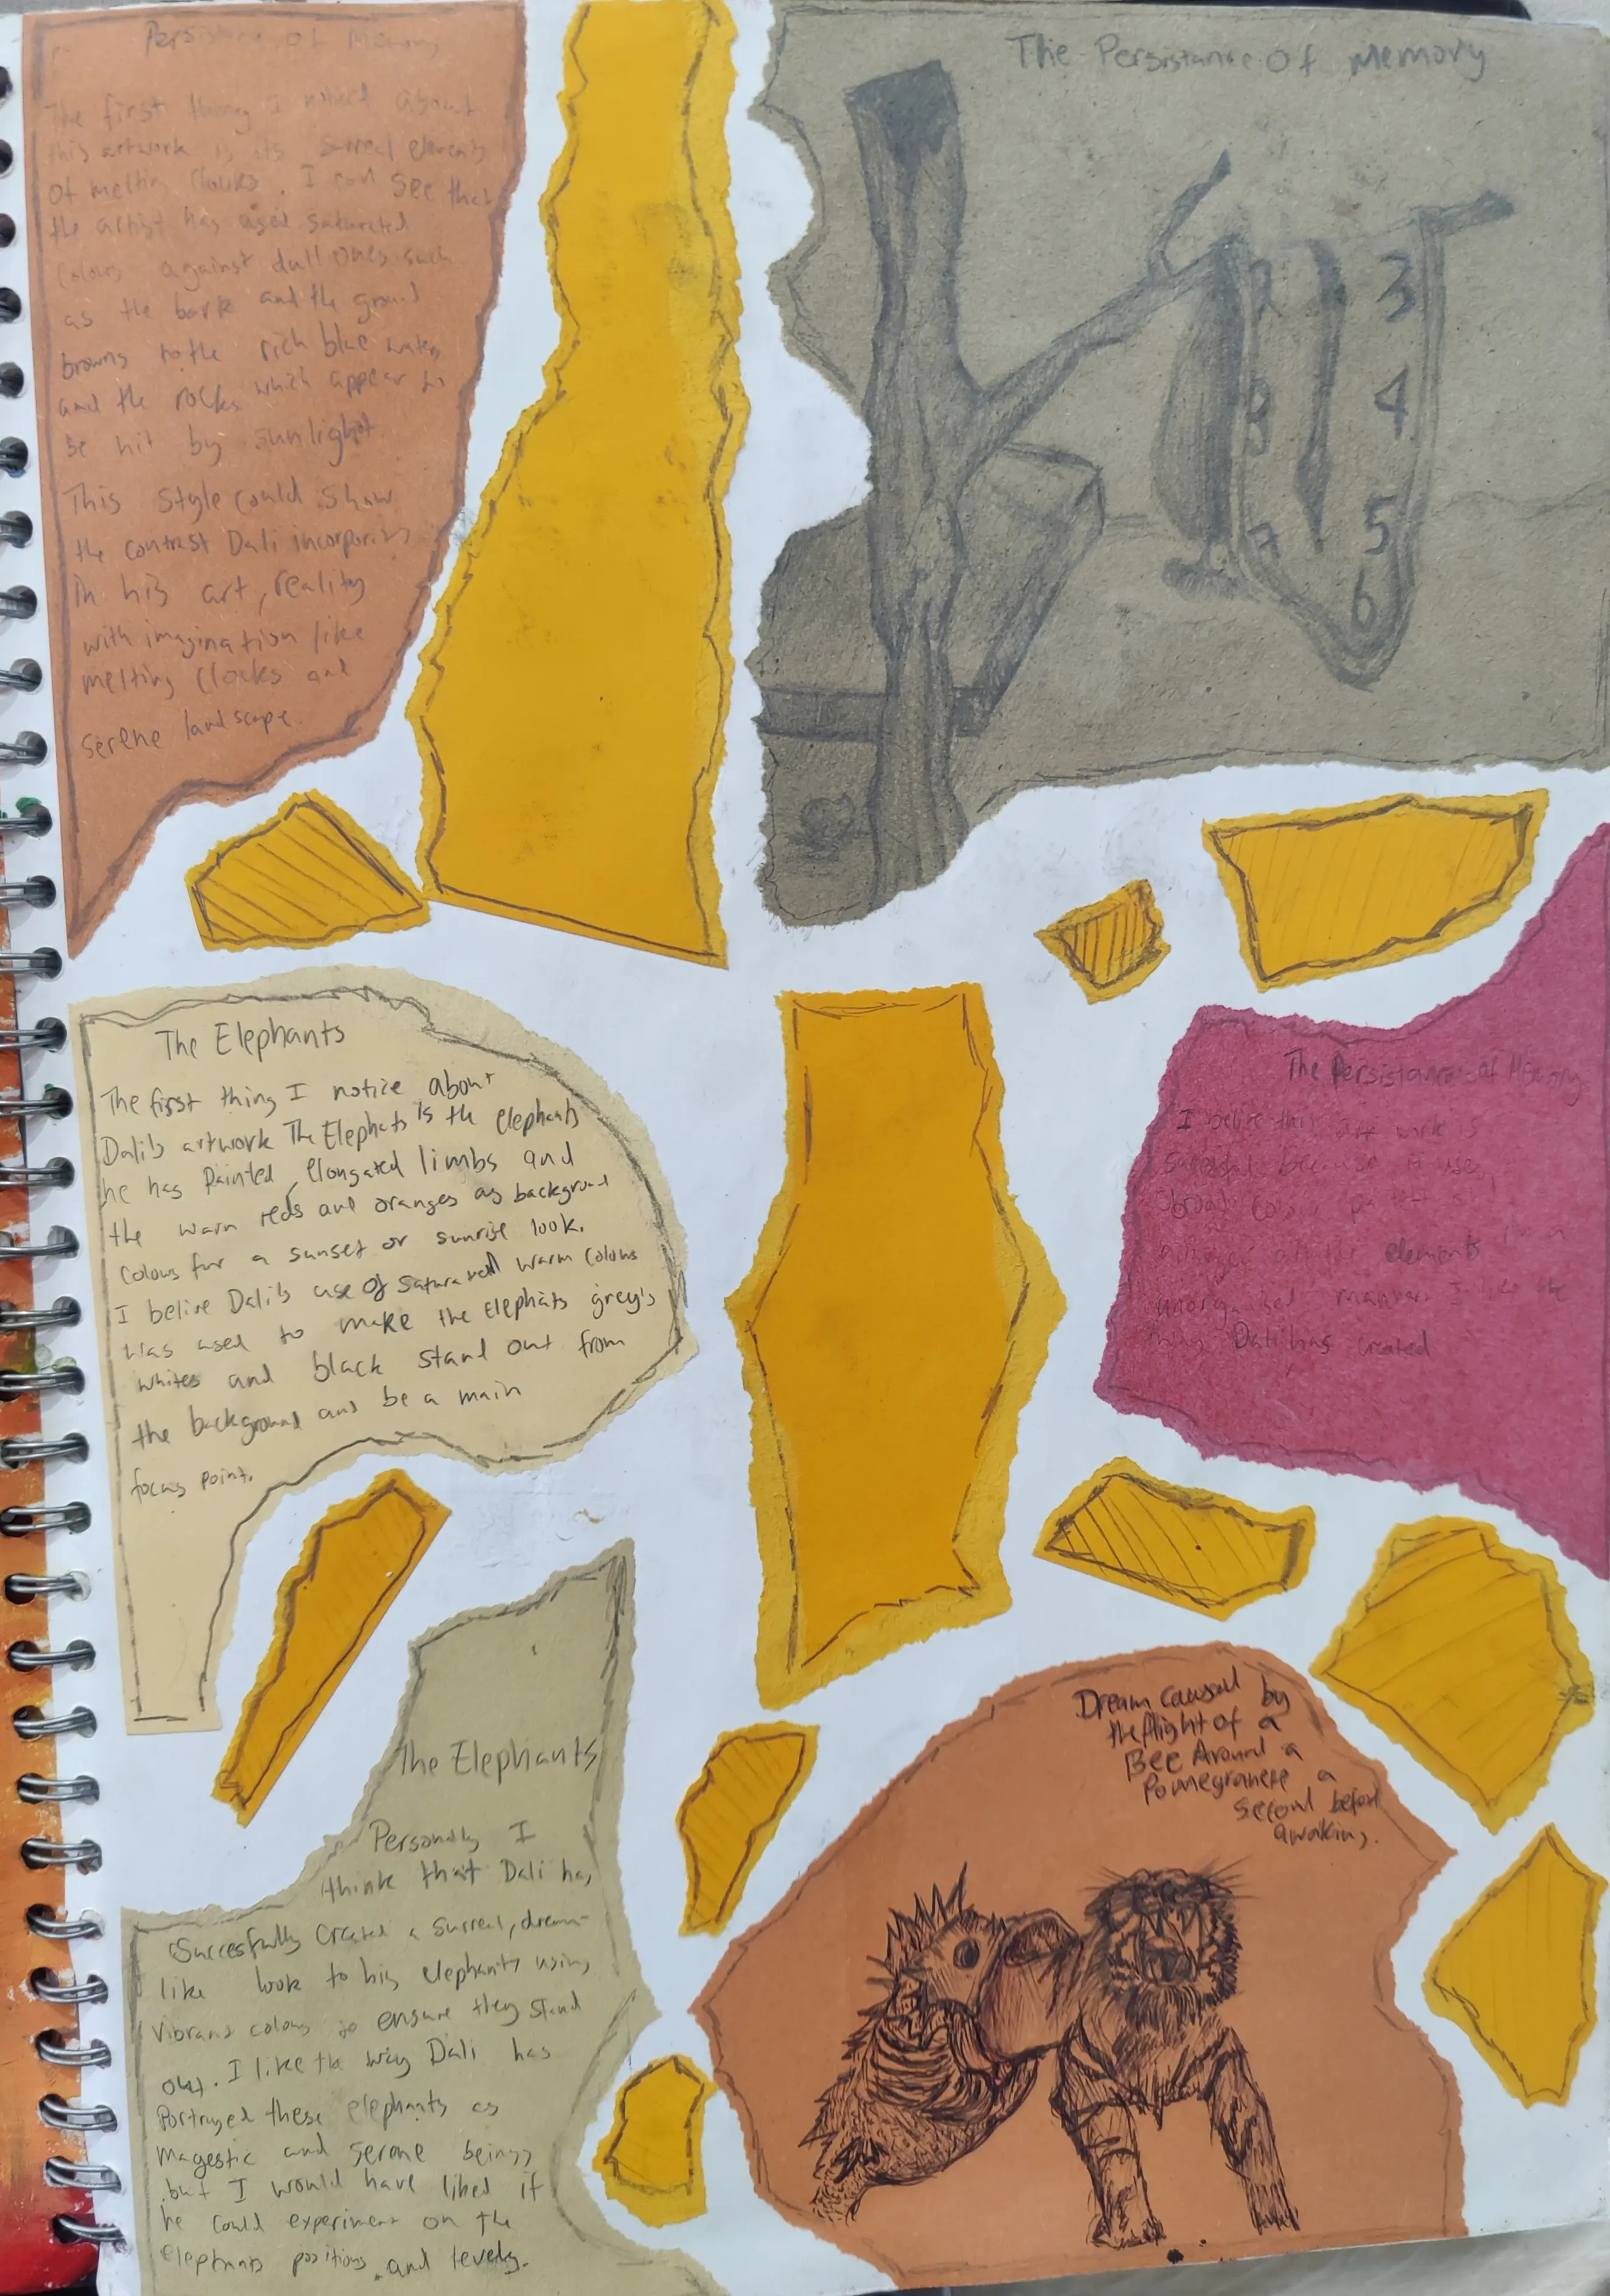 Persistance of Memory
The first thing I notice about
this artwork is its surreal elements
of melting Clocks. I can see that
the artist has used saturated
colours against dull ones such
as the bark and the ground
browns to the rich blue waters
and the rocks which appear to
be hit by sunlight.
This style could show
the contrast Dali incorporates
in his art, reality
with imagination like
melting Clocks and
serene landscape.
The Persistance Of Memory
2 3
4
8
5
7
6
The Elephants
The first thing I notice about
Dali's artwork The Elephats is the elephants
he has Painted, Elongated limbs and
the warm reds and oranges as background
colours for a sunset or sunrise look.
I belive Dali's use of saturated warm colours
was used to make the elephats grey's
whites and black stand out from
the background and be a main
focus point.
The Persistance of Memory
I belive this art work is
because it uses
broad colour
elements in a
unorganised manner. I like the
Dali has created
The Elephants
Personally I
think that Dali has
Succesfully created a surreal, dream-
like look to his elephants using
vibrant colours to ensure they stand
out. I like the way Dali has
Portrayed these elephants as
magestic and serene beings
but I would have liked if
he could experiment on the
elephants positions and levels.
Dream caused by
the flight of a
Bee Around a
Pomegranete a
second before
awaking.